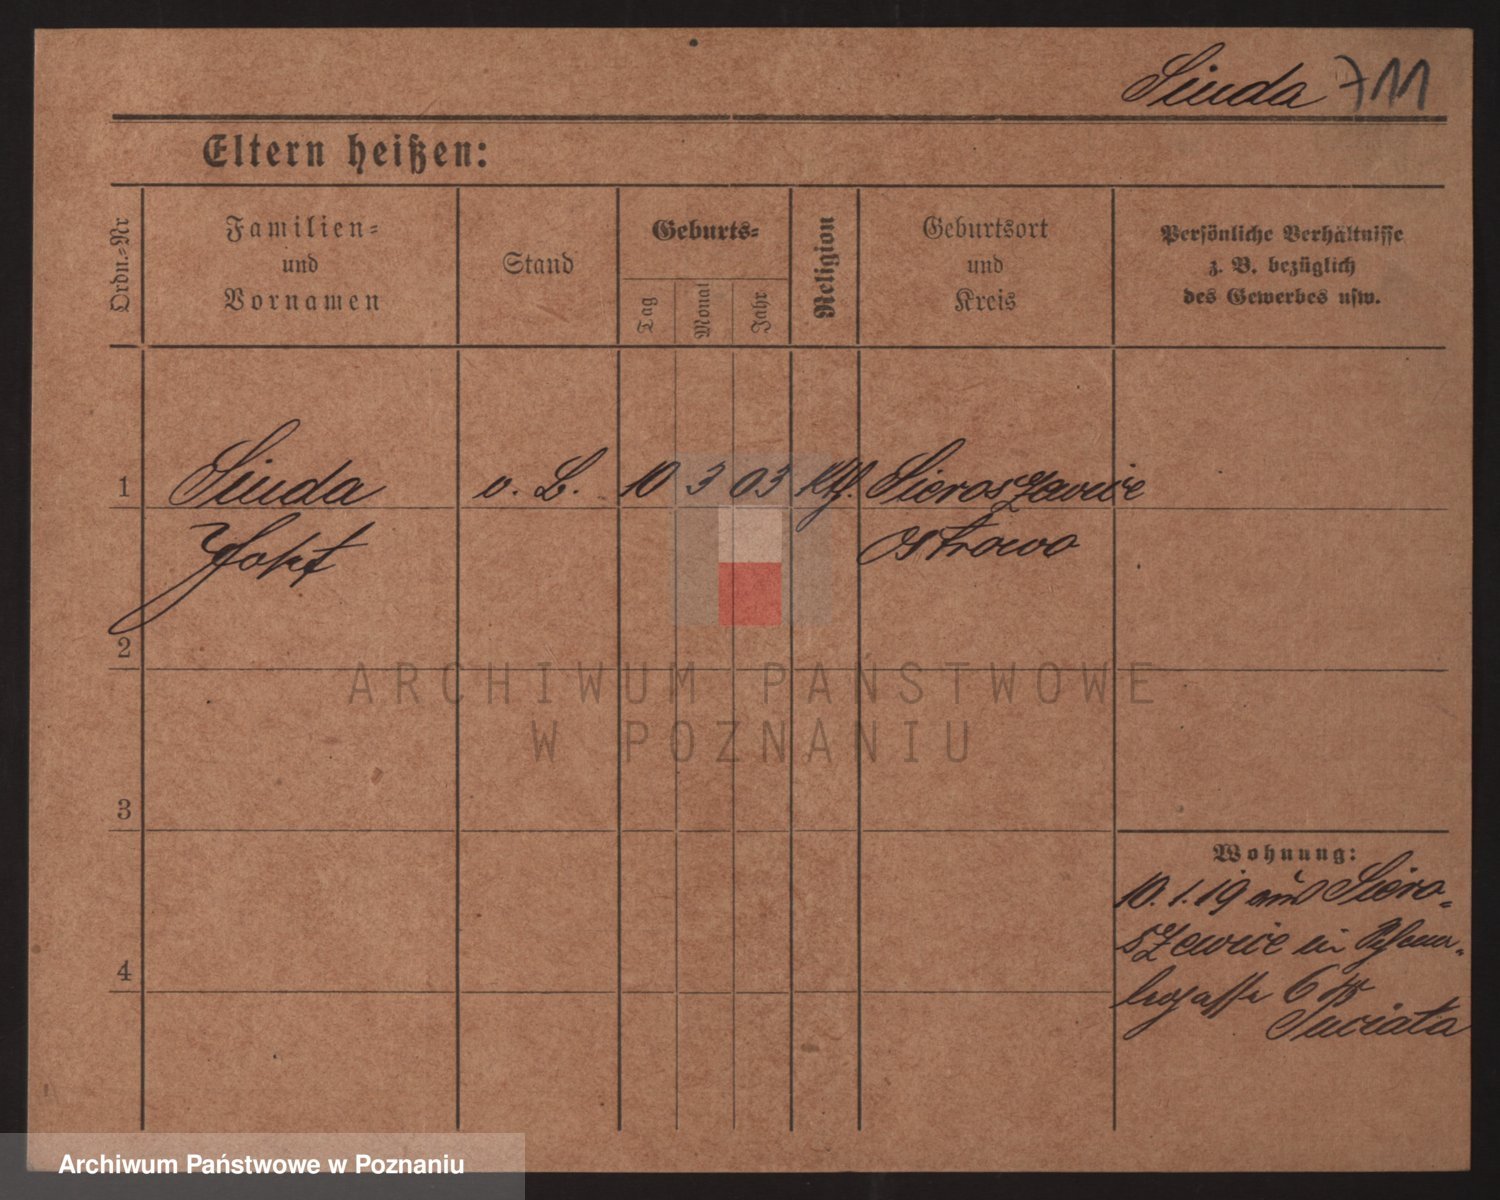 Siuda 711
Eltern heißen:
Ordn.-Nr
Familien-
und
Vornamen
Stand
Geburts-
Tag
Monat
Jahr
Religion
Geburtsort
und
Kreis
Persönliche Verhältnisse
z. B. bezüglich
des Gewerbes usw.
1 Siuda v. L. 10 3 03 kth. Sieroszewice
Josef Ostrowo
2
ARCHIWUM PAŃSTWOWE
W POZNANIU
3
Wohnung:
10.1.19 aus Siero-
szewice in
4
6
Archiwum Państwowe w Poznaniu